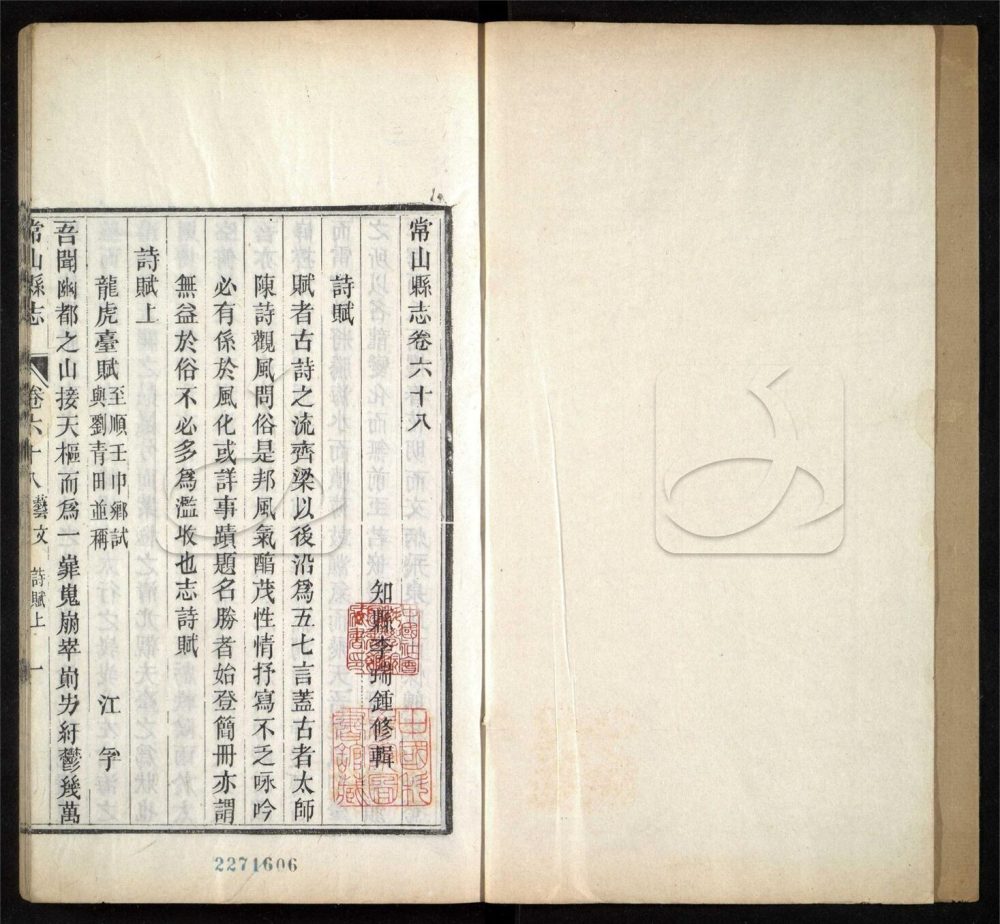 常山縣志卷六十八
知縣李瑞鍾修輯
詩賦
賦者古詩之流齊梁以後沿爲五七言蓋古者太師
陳詩觀風問俗是邦風氣醕茂性情抒寫不乏咏吟
必有係於風化或詳事蹟題名勝者始登簡冊亦謂
無益於俗不必多爲濫收也志詩賦
詩賦上
龍虎臺賦
至順壬申鄉試
與劉青田並稱
江孚
吾聞幽都之山接天樞而爲一嵂嵬崩崒崱屴紆鬱幾萬
常山縣志
卷六十八
藝文
詩賦上
一
2271606